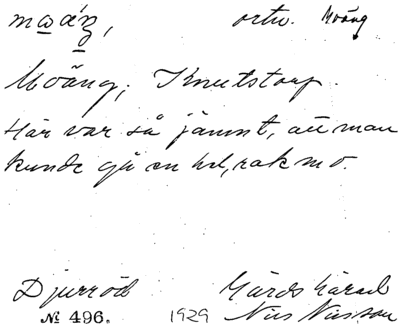 ortv. Moäng
Moäng, Knutstorp.
Här var så jämnt, att man
kunde gå en hel, rak mo.
Djurröd Gärds härad
№ 496. 1929 Nils Nilsson